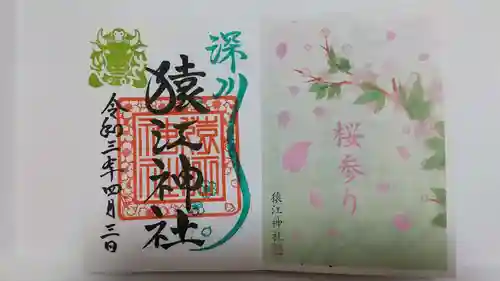 深川
猿江神社
令和三年四月三日
猿江神社
桜参り
猿江神社